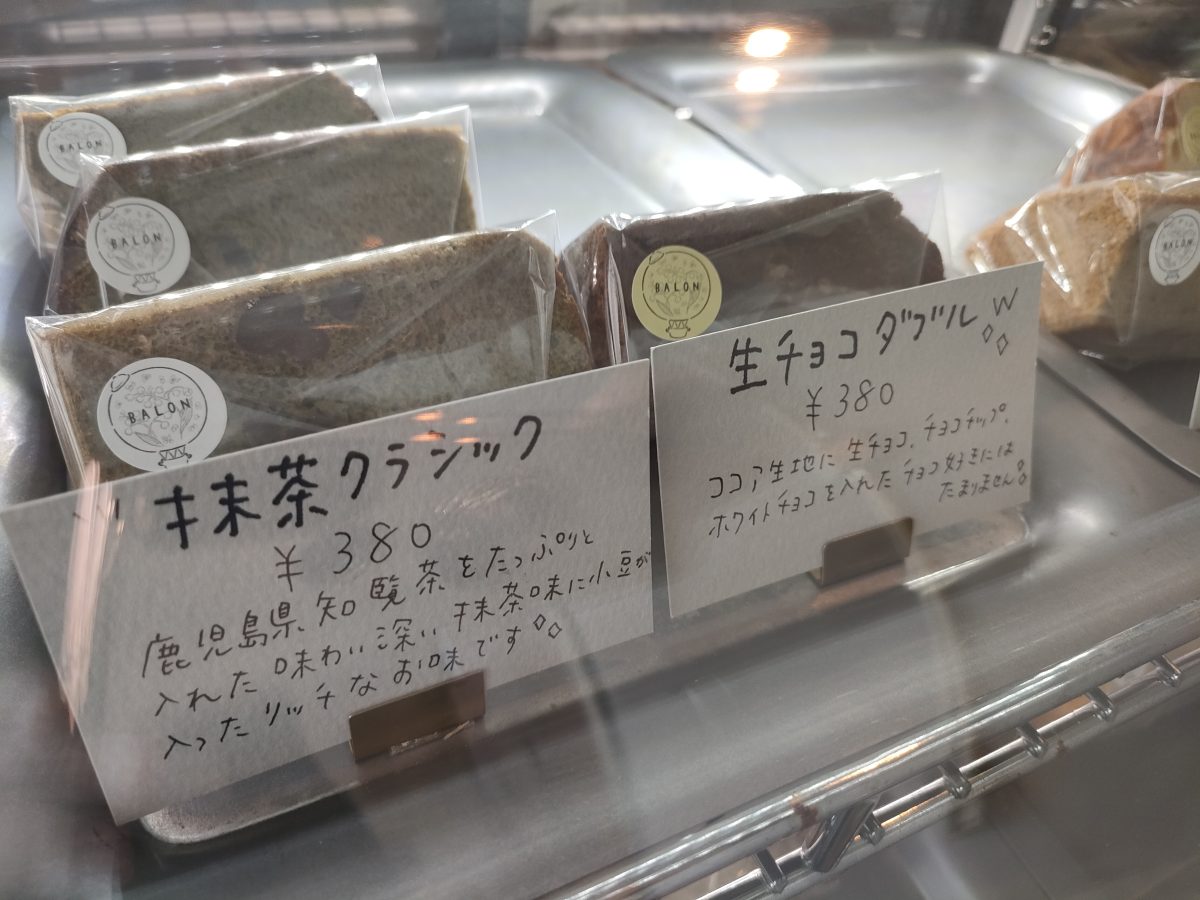 BALON
BALON
BALON
BALON
BALON
抹茶クラシック
¥380
鹿児島県知覧茶をたっぷりと
入れた味わい深い抹茶味に小豆が
入ったリッチなお味です
生チョコダブル W
¥380
ココア生地に生チョコ、チョコチップ、
ホワイトチョコを入れたチョコ好きには
たまりません!